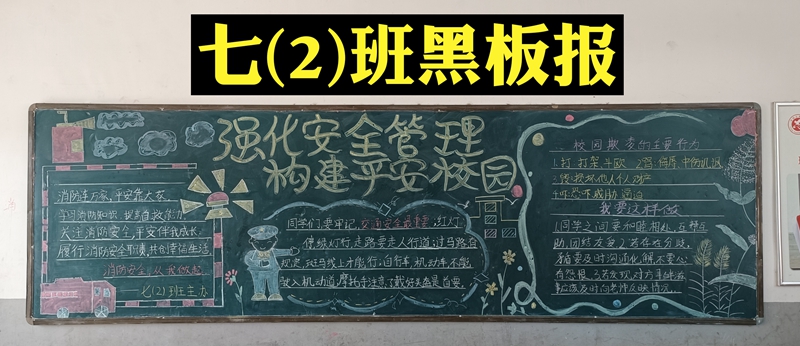 七(2)班黑板报
强化安全管理
构建平安校园
消防连万家,平安靠大家。
学习消防知识 提高自救能力
关注消防安全,平安伴我成长。
履行消防安全职责,共创幸福生活
消防安全,从我做起
七(2)班主办
同学们,要牢记,交通安全最重要,红灯
停绿灯行,走路要走人行道;过马路有
规定,斑马线上才能行;自行车,机动车,不能
驶入机动道,摩托
校园欺凌的主要行为
1.打,打架,斗殴 2.骂,侮辱,中伤
3.毁 损坏他人 财产
4.吓 恐吓 威胁 逼迫
我要这样做
1.同学之间要和睦相处,互帮互
助,团结友爱 2.若存在分歧,
矛盾要及时沟通化解,不要心
有怨恨 3.若发现,对方
应该及时向老师反映情况。